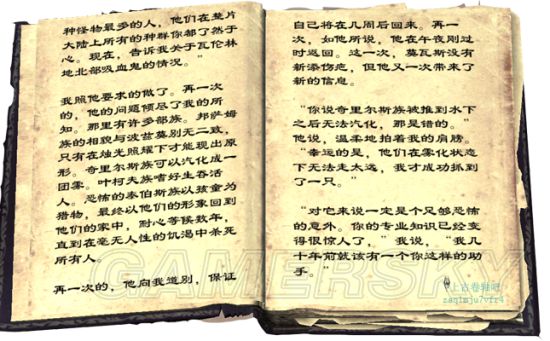 种怪物最多的人，他们在整片
大陆上所有的种群你都了然于
心。现在，告诉我关于瓦伦林
地北部吸血鬼的情况。”
我照他要求的做了。再一次
的，他的问题倾尽了我的所
知。那里有许多部族。邦萨姆
族的相貌与波兹莫别无二致，
只有在烛光照耀下才能现出原
形。奇里尔斯族可以汽化成一
团雾。叶柯夫族嗜好生吞活
人。恐怖的泰伯斯族以孩童为
猎物，最终以他们的形象回到
他们的家中，耐心等候数年，
直到在毫无人性的饥渴中杀死
所有人。
再一次的，他向我道别，保证
自己将在几周后回来。再一
次，如他所说，他在午夜刚过
时返回。这一次，莫瓦斯没有
新添伤疤，但他又一次带来了
新的信息。
“你说奇里尔斯族被推到水下
之后无法汽化，那是错的。”
他说，温柔地拍着我的肩膀。
“幸运的是，他们在雾化状态
下无法走太远，我才成功抓到
了一只。”
“对它来说一定是个足够恐怖
的意外。你的专业知识已经变
得很惊人了，”我说，“我几
十年前就该有一个你这样的助
手。”
GAMERSKY
上古卷轴吧
zaq1mju7vfr4